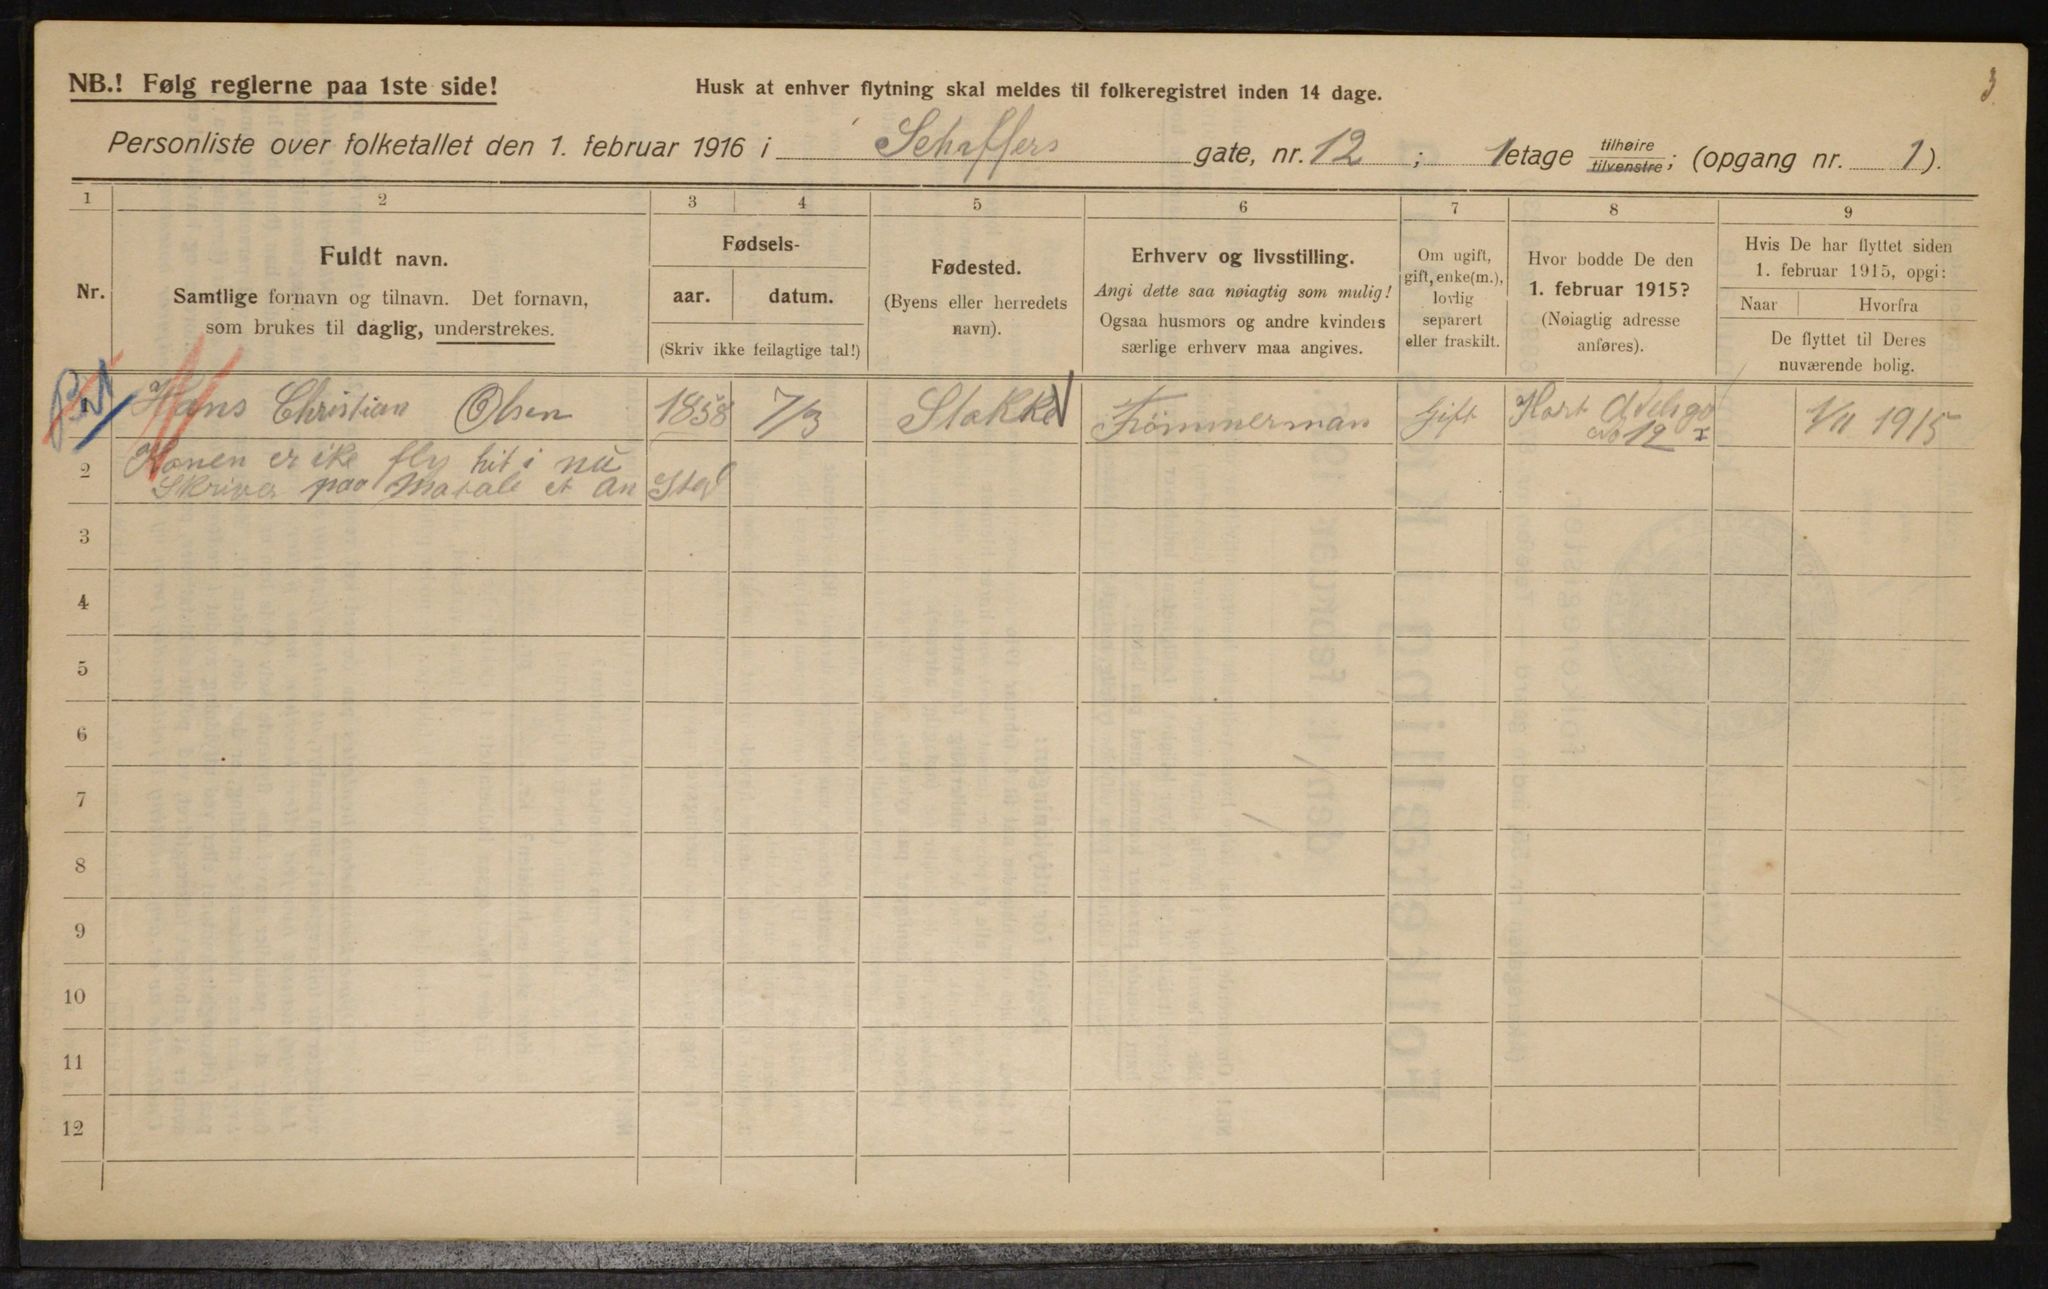 3
NB.! Følg reglerne paa 1ste side! Husk at enhver flytning skal meldes til folkeregistret inden 14 dage.
Personliste over folketallet den 1. februar 1916 i Schaffers gate, nr. 12 ; 1 etage tilhøire tilvenstre; (opgang nr. 1).
1 2 3 4 5 6 7 8 9
Nr.
Fuldt navn.
Samtlige fornavn og tilnavn. Det fornavn,
som brukes til daglig, understrekes.
Fødsels-
aar. datum.
(Skriv ikke feilagtige tal!)
Fødested.
(Byens eller herredets
navn).
Erhverv og livsstilling.
Angi dette saa nøiagtig som mulig!
Ogsaa husmors og andre kvinders
særlige erhverv maa angives.
Om ugift,
gift, enke(m.),
lovlig
separert
eller fraskilt.
Hvor bodde De den
1. februar 1915?
(Nøiagtig adresse
anføres).
Hvis De har flyttet siden
1. februar 1915, opgi:
Naar Hvorfra
De flyttet til Deres
nuværende bolig.
Hans Christian Olsen 1858 7/3 Stokke Trømmerman Gift 12 1/11 1915
2 Konen er ike fly hit i nu
Skriver paa
3
4
5
6
7
8
9
10
11
12